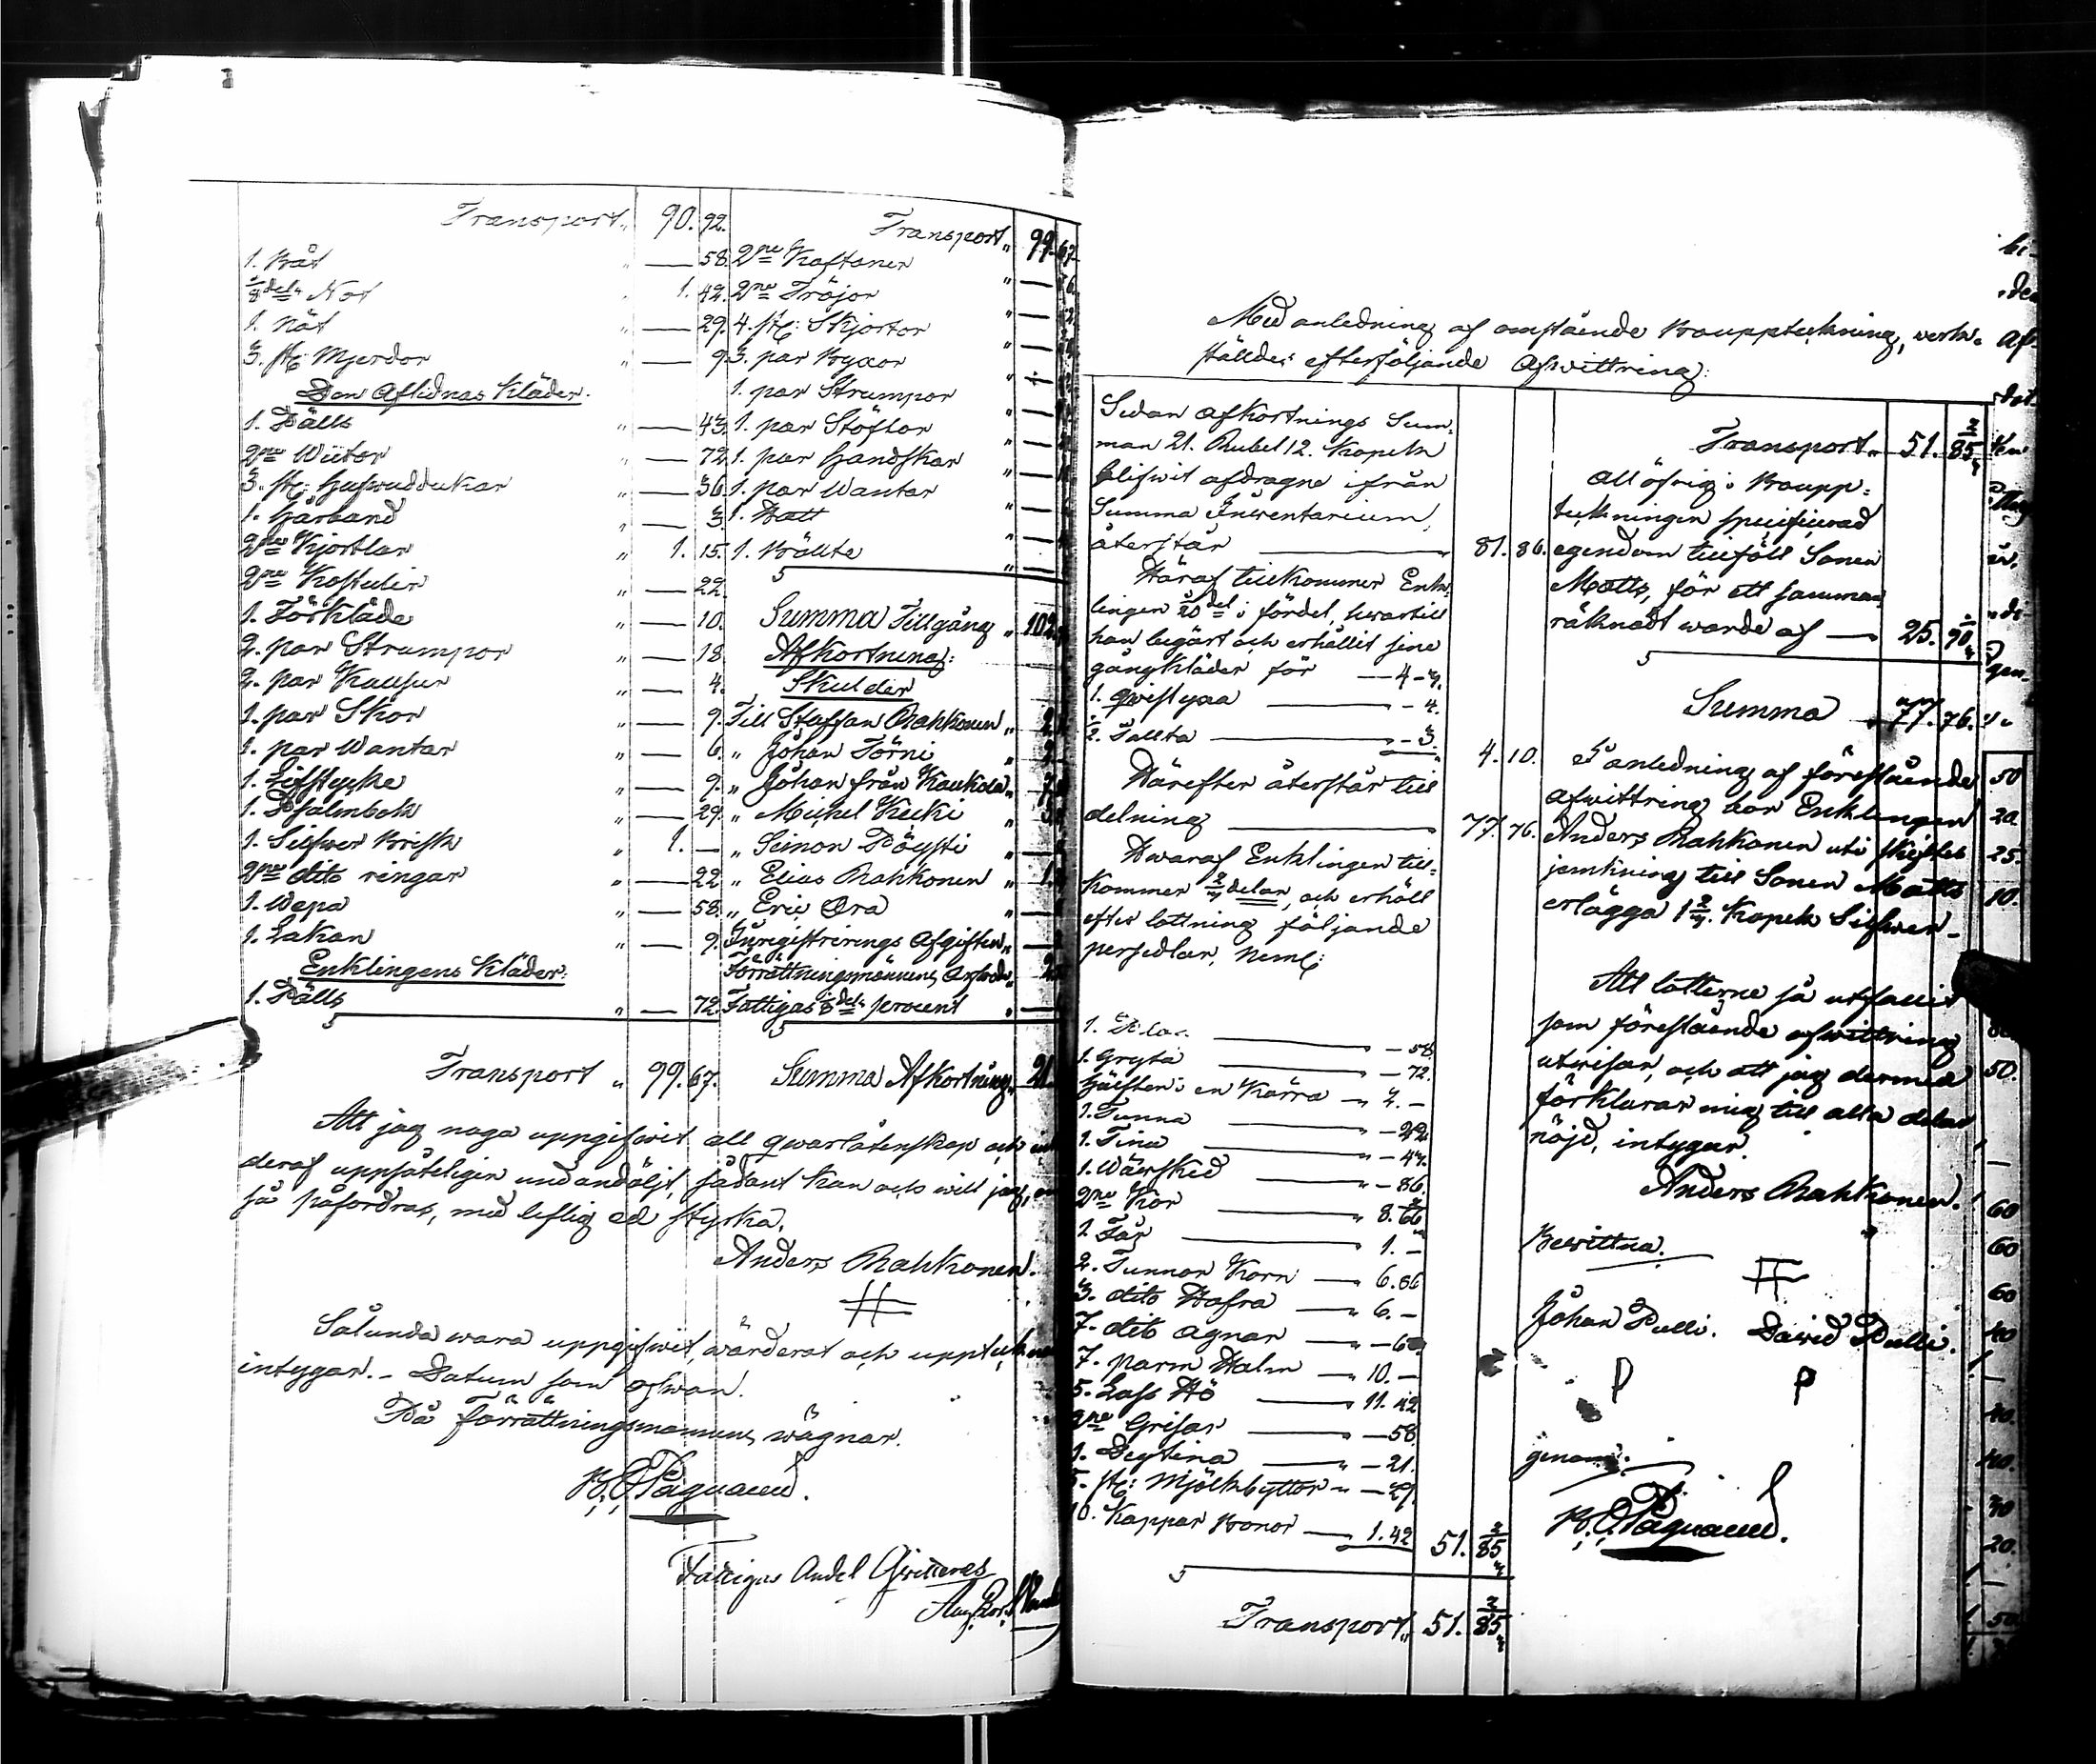 Transport " 90. 92.
1. Båt " — 58.
1/8 del i Not " 1. 42.
1. Nät " — 29.
3. st: Mjerdor " — 9.
Den Aflidnas Kläder.
1. Pälls " — 43.
2ne " — 72.
3. st: Hufwuddukar " — 36.
1. Hårband " — 3.
2ne Kjortlar " 1. 15.
2ne " — 22.
1. Förkläde " — 10.
2. par Strumpor " — 18.
2. par " — 4.
1. par Skor " — 9.
1. par Wantar " — 6.
1. Lifstycke " — 9.
1. Psalmbok " — 29.
1. Silfwer Brisk " 1. —
2ne dito ringar " — 22.
1. Wepa " — 58.
1. Lakan " — 9.
Enklingens Kläder:
1. Pälls " — 72.
Transport " 99. 67.
Transport " 99. 67.
2ne Kaftaner " —
2ne Tröjor " —
4. st: Skjortor " —
3. par Byxor " —
1. par Strumpor " —
1. par Stöflor " —
1. par Handskar " —
1. par Wantar " —
1. Hatt " —
1. Bällte " —
Summa Tillgång " 102.
Afkortning:
Skulder
Till Staffan Rahkonen "
" Johan Törni "
" Johan från Kaukola "
" Michel Kecki "
" Simon Pöysti "
" Elias Rahkonen "
" Eric Ora "
Inregistrerings Afgiften "
Förrättningsmannens Arfwode "
Fattigas 1/8 dels procent "
Summa Afkortning " 21.
Att jag noga uppgifwit all qwarlåtenskap och
deraf uppsåteligen undandöljt, sådant kan och will jag,
så påfordras, med liflig ed styrka.
Anders Rahkonen.
Sålunda wara uppgifwit, wärderat och
intygar. - Datum som ofwan.
På förrättningsmannens wägnar.
Fattigas Andel Qwitteras
Med anledning af omstående Bouppteckning, werk-
ställdes efterföljande Afwittring:
Sedan afkortnings Sum-
man 21. Rubel 12. Kopek
blifwit afdragne ifrån
Summa Inwentarium,
återstår — 81. 86.
Häraf tillkommer Enk-
lingen 1/20 del i fördel, hwartill
han begärt och erhållit sine
gångkläder för — 4 - 3.
1. qwistyxa — - 4.
1. Tallta — - 3. 4. 10.
Därefter återstår till
delning — 77. 76.
Hwaraf Enklingen till-
kommer 2/3 delar, och erhöll
efter lottning följande
persedlar, neml:
1. — - 58.
1. Gryta — - 72.
Hälften i en Kärra — 2. -
1. Tunna — - 22.
1. Tina — - 43.
1. Wäfsked — - 86.
2ne Kor — " 8. 66
1. Får — " 1. -
2. Tunnor Korn — " 6. 86
3. dito Hafra — " 6. -
7. dito agnar — "
7. parm Halm — " 10. -
5. Lass Hö — " 11. 42
2ne Grisar — " - 58.
1. Degtina — " - 21.
5. st: Mjölkbyttor " -
10. Kappar Bönor — 1. 42 51. 85 2/3
Transport " 51. 85 2/3
Transport " 51. 85 2/3
All öfrig i Boupp-
teckningen specificerad
egendom tillföll Sonen
Matts, för ett samman-
räknadt wärde af — 25. 90 1/3
Summa 77. 76.
I anledning af förestående
afwittring bör Enklingen
Anders Rahkonen uti skiftes
jemkning till Sonen Matts
erlägga 1 2/3. Kopek Silfwer. -
Att lotterne så utfallit
som förestående afwittring
utwisar, och att jag dermed
förklarar mig till alla delar
nöjd, intygar.
Anders Rahkonen.
Bewittna.
Johan Pulli. David Pulli.
genom: